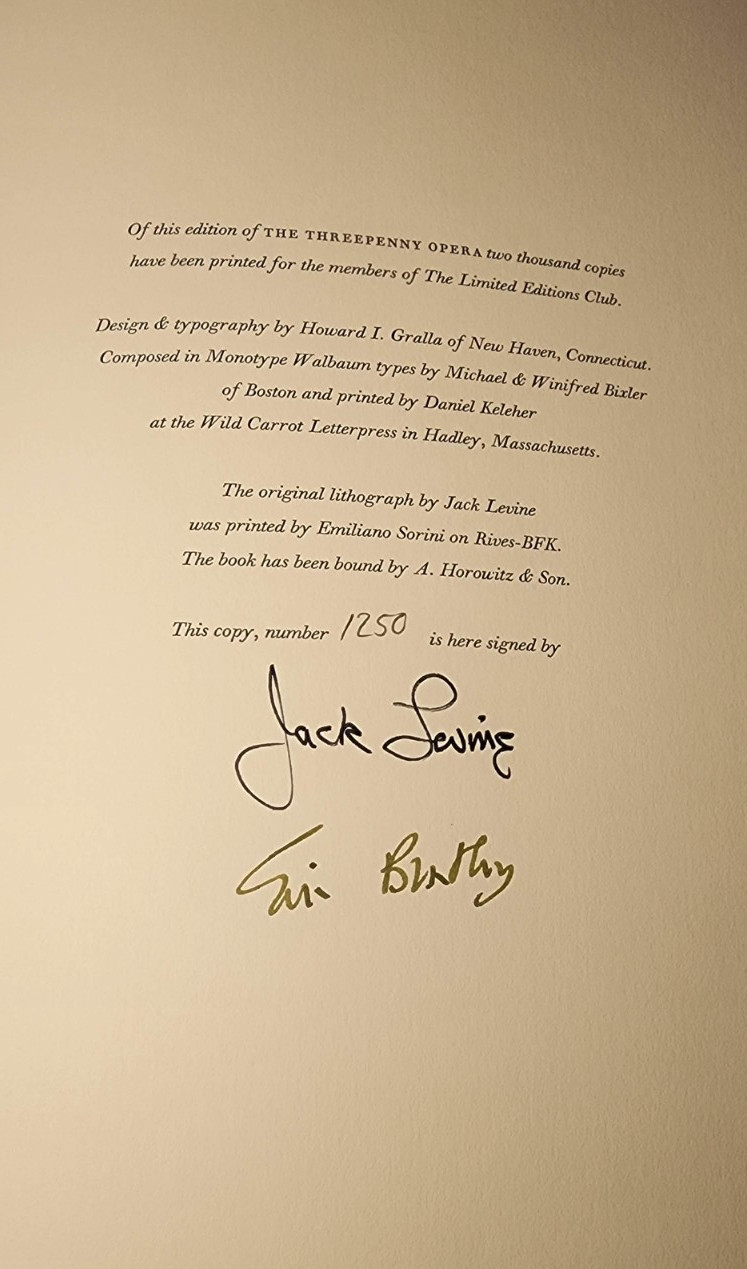 Of this edition of THE THREEPENNY OPERA two thousand copies
have been printed for the members of The Limited Editions Club.
Design & typography by Howard I. Gralla of New Haven, Connecticut.
Composed in Monotype Walbaum types by Michael & Winifred Bixler
of Boston and printed by Daniel Keleher
at the Wild Carrot Letterpress in Hadley, Massachusetts.
The original lithograph by Jack Levine
was printed by Emiliano Sorini on Rives-BFK.
The book has been bound by A. Horowitz & Son.
This copy, number 1250 is here signed by
Jack Levine
Eric Bentley